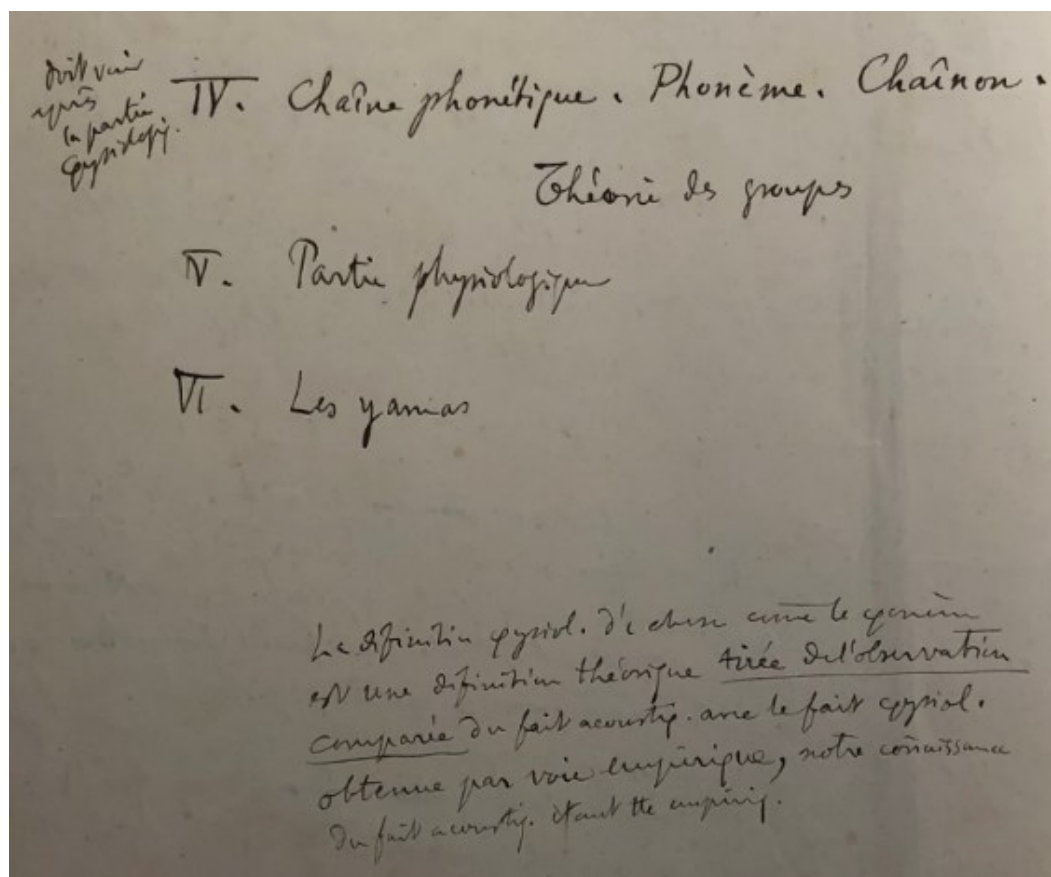 doit venir
après
la partie
φysiologiq.
IV. Chaîne phonétique. Phonème. Chaînon.
Théorie des groupes
V. Partie physiologique
VI. Les yamas
La définition φysiol. d'e chose come le φonème
est une définition théorique tirée de l'observation
comparée du fait acoustiq. avec le fait φysiol.
obtenue par voie empirique, notre conaissance
du fait acoustiq. étant tte empiriq.